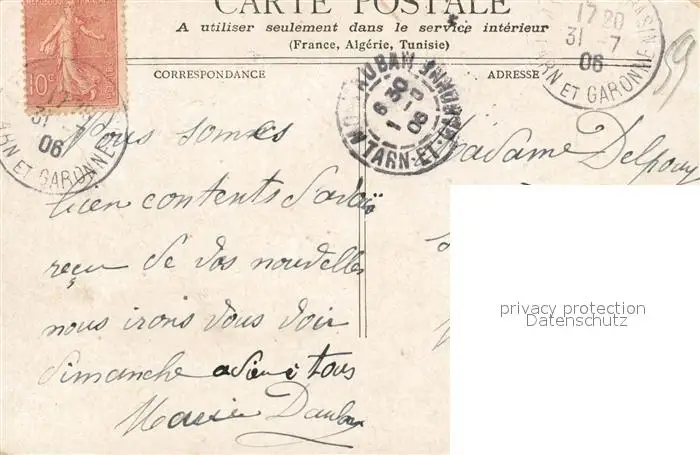 CARTE POSTALE
A utiliser seulement dans le service intérieur
(France, Algérie, Tunisie)
CORRESPONDANCE
ADRESSE
10c
31
06
TARN ET GARONNE
MONTAUBAN
6 30
1 -8
06
TARN-ET-GARONNE
17 20
31 -7
06
TARN ET GARONNE
59
Madame Delpouy
Nous sommes
bien contents d'avoir
reçu de vos nouvelles
nous irons vous voir
dimanche adieu à tous
Marie
privacy protection
Datenschutz